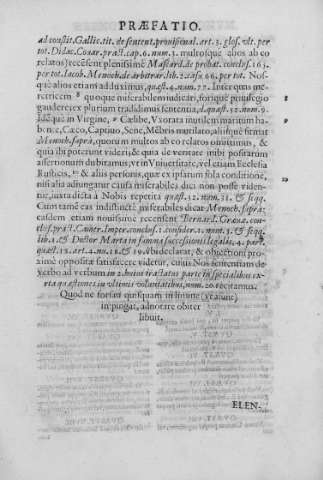 PRÆFATIO.
ad constit. Gallic. tit. de sentent. prouisional. art. 3. glos. vlt. per
tot. Didac. Couar. pract. cap. 6. num. 3. multosque alios ab eo
relatos) recenset plenissimè Mascard. de probat. conclus. 163.
per tot. Iacob. Menoch. de arbitrar. lib. 2. casu 66. per tot. Nos-
que alios etiam adduximus, quæst. 4. num. 27. Inter quas me-
reтricem quoque miserabilem iudicari, foriquè priuilegio
gaudere ex plurium tradidimus sententia, quæst. 32. num. 9.
Idéque in Virgine, Cælibe, Vxorata inutilem maritum ha-
bente, Cæco, Captiuo, Sene, Mẽbris mutilato, aliisque firmat
Menoch. suprà, quorũ in multos ab eo relatos omittimus, &
quia ibi poterunt videri, & quia de veritate mihi postrarum
assertionum dubitamus, vt in Vniuersitate, vel etiam Ecclesia
Rusticis, & aliis personis, quæ ex ipsarum sola conditione,
nisi alia adiungatur causa miserabiles dici non posse viden-
tur, iuxta dicta à Nobis repetita quæst. 12. num. 21. & seqq.
Cum tamē eas indistinctè miserabiles dicat Menoch. supra;
easdem etiam nouissimè recenset Bernard. Græuæ. con-
clus. pract. Camer. Imper. conclus. 1. consider. 2. num. 3. & seqq.
lib. 1. & Doctor Marta in summa successionis legalis, 4. part.
quæst. 12. art. 4. nu. 12. & 19. vbi declarat, & obiectioni pro-
ximè oppositæ satisfecere videtur, cuius Nos sententiam de
verbo ad verbum in 2. huius tractatus parte in specialibus ex-
erta quæstionis in vltimis voluntatibus, num. 20. recitamus.
Quod ne forsini quisquam in limine (vt aiunt)
impingat, adnotare obiter
libuit.
ELEN-